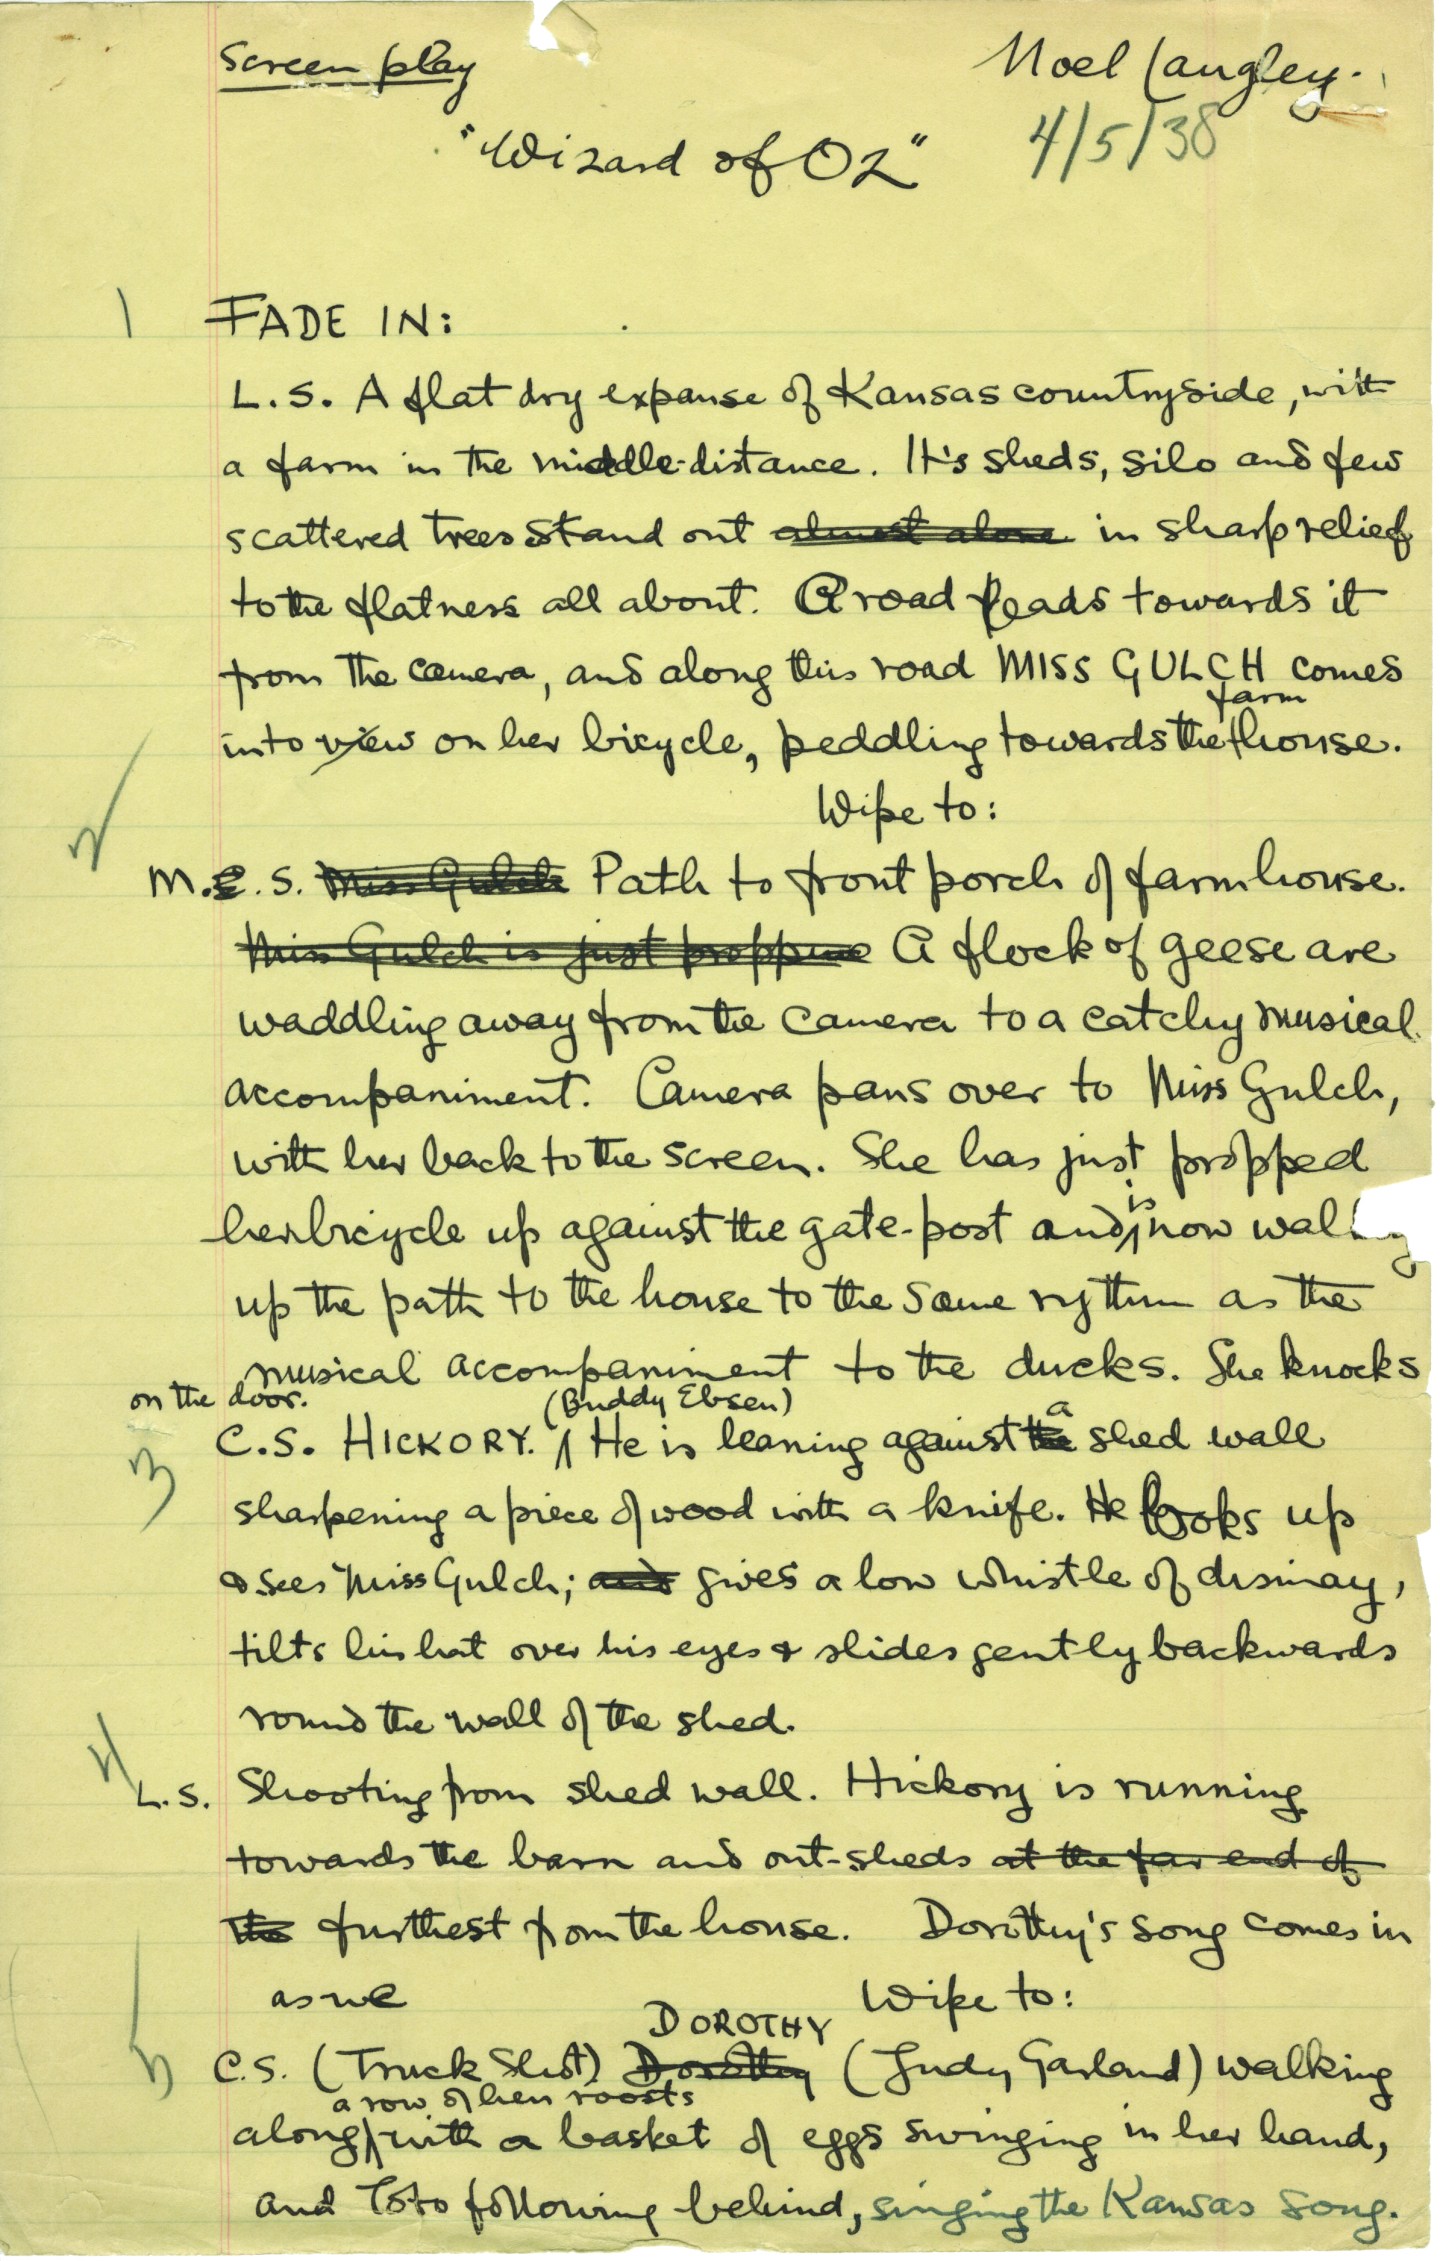 Screen play
Noel Langley.
"Wizard of Oz"
4/5/38
1 FADE IN:
L.S. A flat dry expanse of Kansas countryside, with
a farm in the middle-distance. It's sheds, silo and few
scattered trees stand out almost alone in sharp relief
to the flatness all about. A road leads towards it
from the camera, and along this road MISS GULCH comes
farm
into view on her bicycle, peddling towards the house.
Wipe to:
2
M.C.S. Miss Gulch Path to front porch of farmhouse.
Miss Gulch is just propping A flock of geese are
waddling away from the camera to a catchy musical
accompaniment. Camera pans over to Miss Gulch,
with her back to the screen. She has just propped
is
her bicycle up against the gate-post and now
up the path to the house to the same rythm as the
musical accompaniment to the ducks. She knocks
on the door.
(Buddy Ebsen)
a
3 C.S. HICKORY. He is leaning against the shed wall
sharpening a piece of wood with a knife. He looks up
& sees Miss Gulch; and gives a low whistle of dismay,
tilts his hat over his eyes & slides gently backwards
round the wall of the shed.
4
L.S. Shooting from shed wall. Hickory is running
towards the barn and out-sheds at the far end of
the furthest from the house. Dorothy's song comes in
as we Wipe to:
DOROTHY
5 C.S. (Truck Shot) Dorothy (Judy Garland) walking
a row of hen roosts
along with a basket of eggs swinging in her hand,
and Toto following behind, singing the Kansas song.